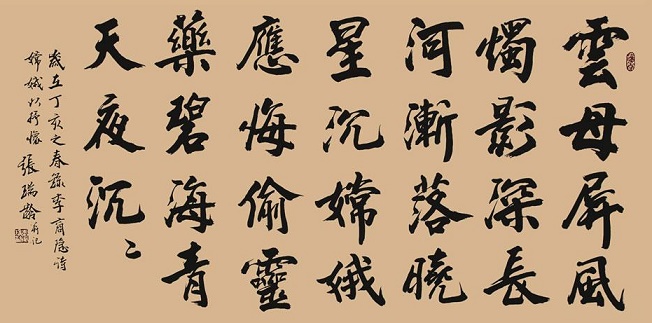 雲母屏風
燭影深長
河漸落曉
星沉嫦娥
應悔偷靈
藥碧海青
天夜沉〻
歲在丁亥之春錄李商隐诗
嫦娥以抒懷 張瑞齡并记